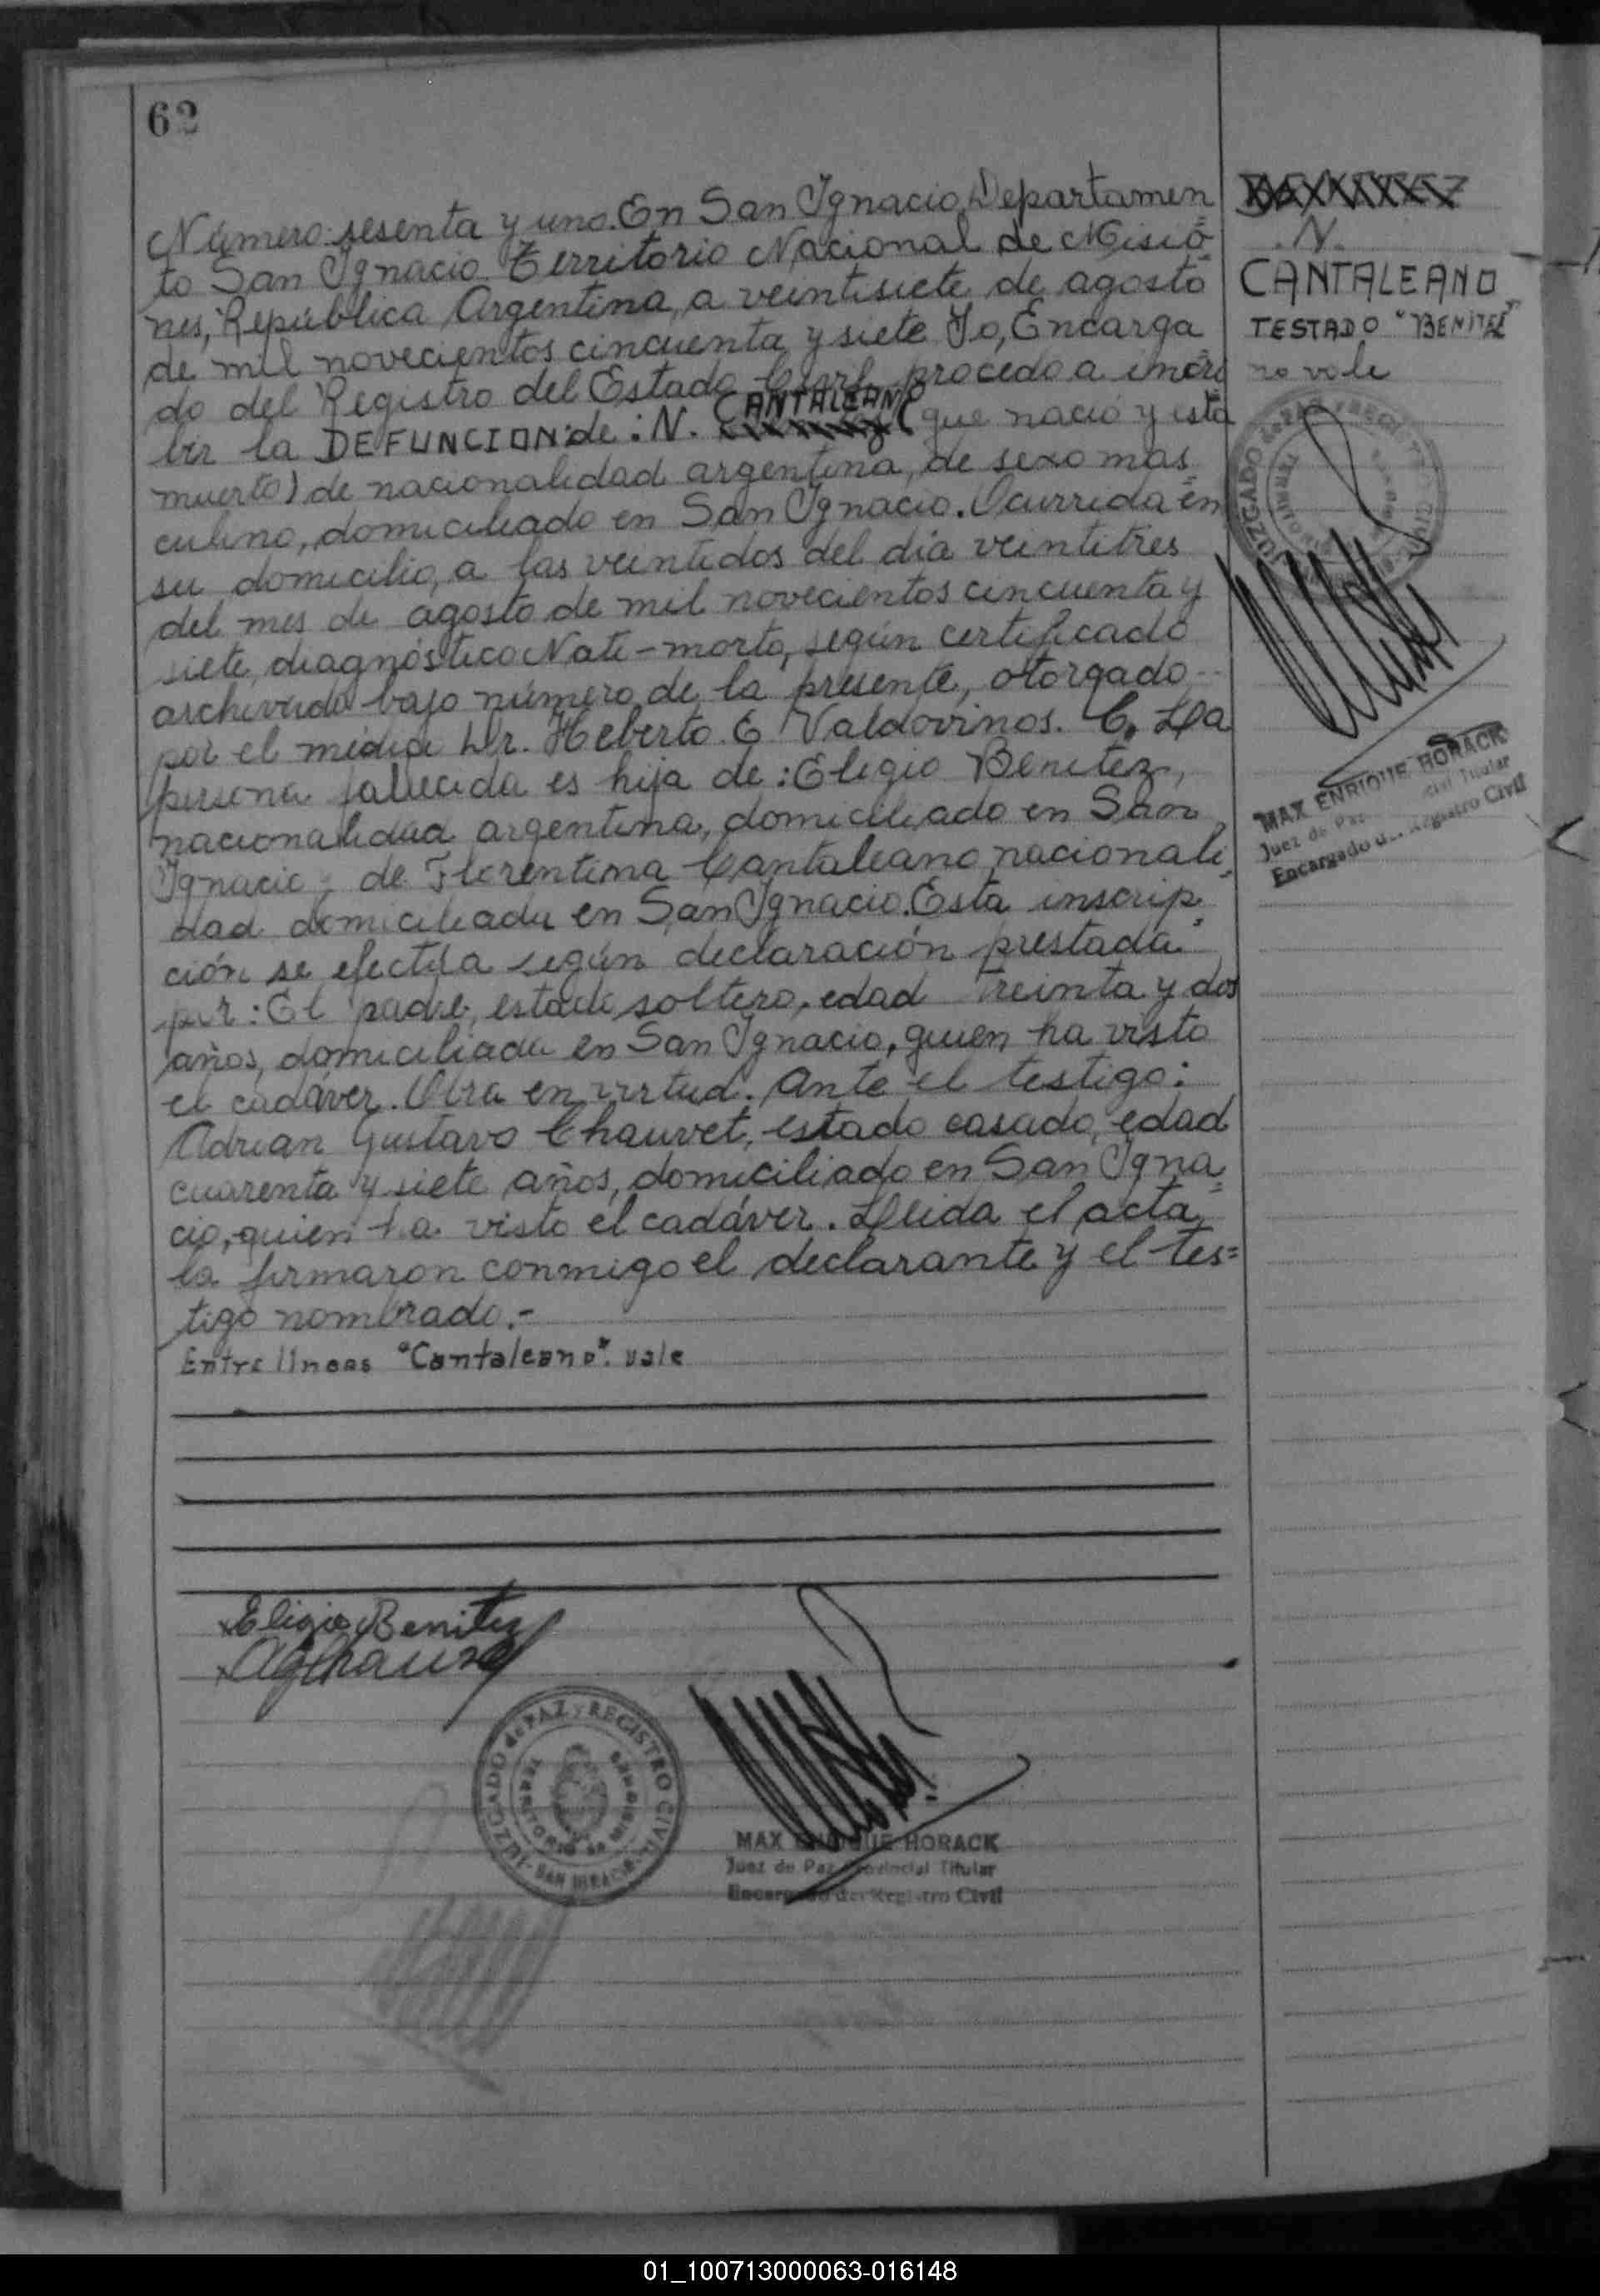 62
Número sesenta y uno. En San Ignacio Departamen
to San Ignacio Territorio Nacional de Misio
nes, República Argentina, a veintisiete de agosto
de mil novecientos cincuenta y siete Yo, Encarga
do del Registro del Estado Civil procedo a inscri
CANTALEANO
bir la DEFUNCION de: N. (que nació y está
muerto) de nacionalidad argentina, de sexo mas
culino, domiciliado en San Ignacio. Ocurrida en
su domicilio, a las veintidos del dia veintitres
del mes de agosto de mil novecientos cincuenta y
siete, diagnóstico Nati-morto, según certificado
archivado bajo número de la presente, otorgado
por el médico Dr. Heberto E Valdovinos. C. La
persona fallecida es hija de: Eligio Benitez,
nacionalidad argentina, domiciliado en San
Ignacio y de Florentina Cantaleano nacionali
dad domiciliada en San Ignacio. Esta inscrip
ción se efectúa según declaración prestada
por: El padre, estado soltero, edad treinta y dos
años, domiciliado en San Ignacio, quien ha visto
el cadáver. Obra en virtud. Ante el testigo:
Adrian Gustavo Chauvet, estado casado, edad
cuarenta y siete años, domiciliado en San Igna
cio, quien ha visto el cadáver. Lleida el acta,
la firmaron conmigo el declarante y el tes=
tigo nombrado.-
Entre lineas "Cantaleano". vale
Eligio Benitez
AGChauvet
JUZGADO de PAZ y REGISTRO CIVIL
TERRITORIO DE MISIONES
SAN IGNACIO
MAX ENRIQUE HORACK
Juez de Paz Provincial Titular
Encargado del Registro Civil
BENITEZ
.N.
CANTALEANO
TESTADO "BENITEZ"
no vale
JUZGADO de PAZ y REGISTRO CIVIL
MAX ENRIQUE HORACK
Juez de Paz Titular
Encargado del Registro Civil
01_100713000063-016148